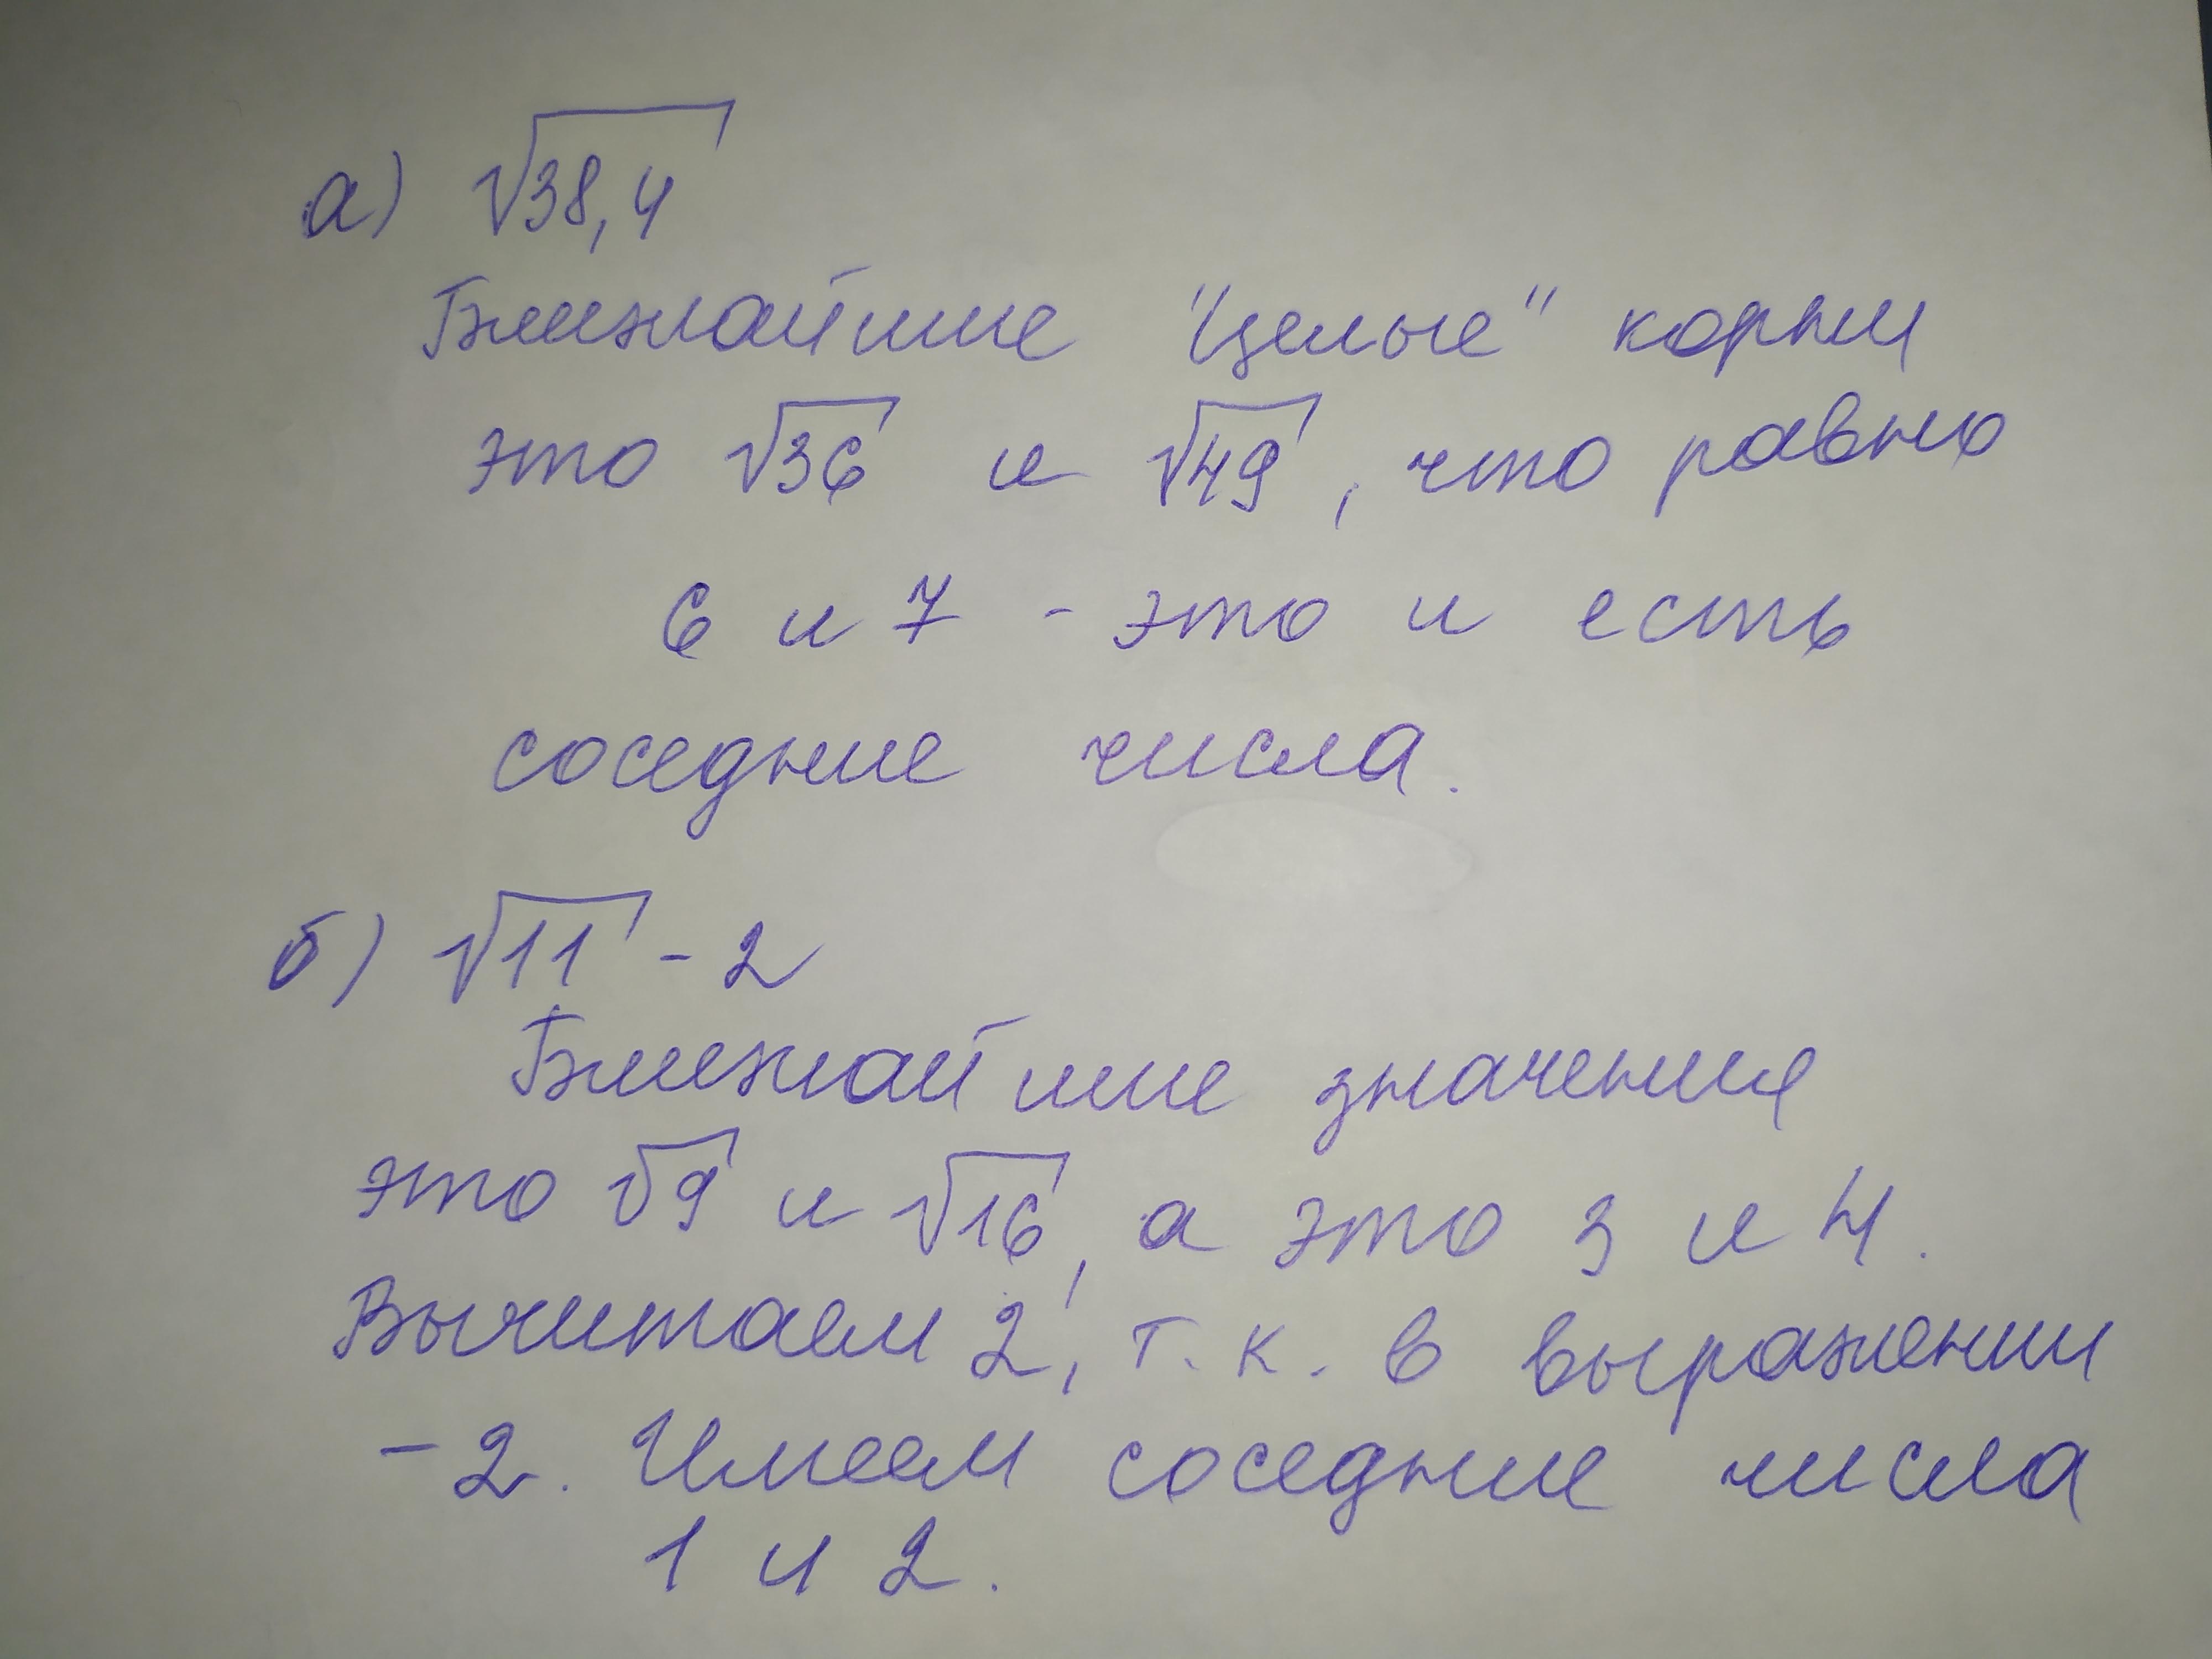 а) √38,4
Ближайшие "целые" корни
это √36 и √49, что равно
6 и 7 - это и есть
соседние числа.
б) √11 - 2
Ближайшие значения
это √9 и √16, а это 3 и 4.
Вычитаем 2, т.к. в выражении
-2. Имеем соседние числа
1 и 2.